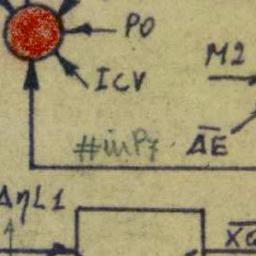 PO
ICV
M2
#inP7
A̅E̅
ΔηL1